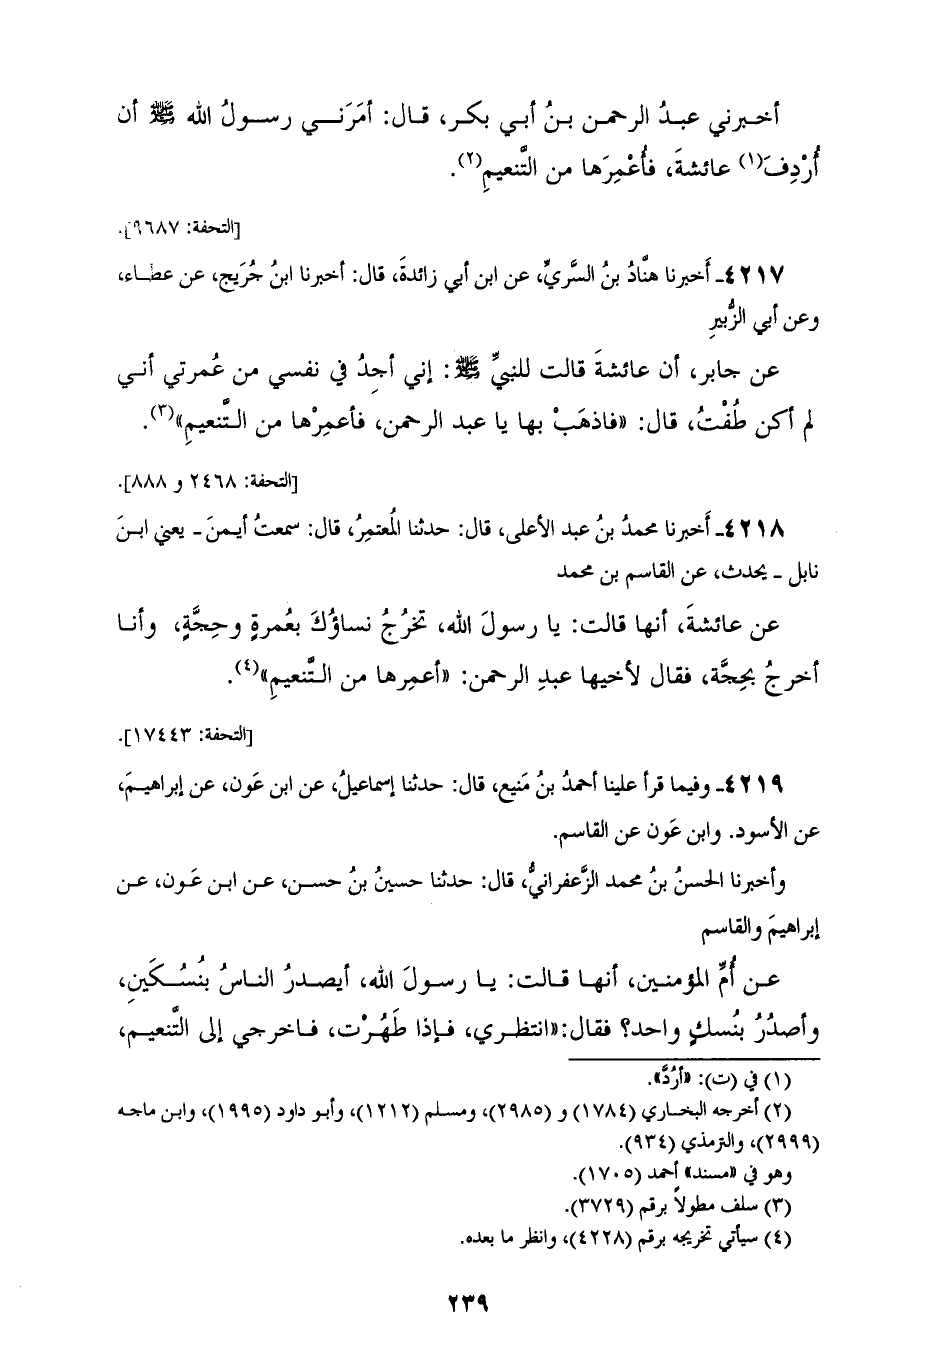 أخـبرني عبـدُ الرحمـن بـنُ أبـي بكـر، قـال: أمَرَنـي رسـولُ الله ﷺ أن
أُرْدِفَ(١) عائشةَ، فأُعْمِرَها من التَّنعيمِ(٢).
[التحفة: ٩٦٨٧].
٤٢١٧ـ أَخبرنا هنَّادُ بنُ السَّريِّ، عن ابن أبي زائدةَ، قال: أخبرنا ابنُ جُرَيج، عن عطـاء،
وعن أبي الزُّبيرِ
عن جابر، أن عائشةَ قالت للنبيِّ ﷺ: إني أجِدُ في نفسي من عُمرتي أنـي
لم أكن طُفْتُ، قال: «فاذهَبْ بها يا عبد الرحمن، فأعمِرْها من التَّنعيمِ»(٣).
[التحفة: ٢٤٦٨ و ٨٨٨].
٤٢١٨ـ أَخبرنا محمدُ بنُ عبد الأعلى، قال: حدثنا المُعتمِرُ، قال: سمعتُ أيـمنَ ـ يعني ابـنَ
نابل ـ يحدث، عن القاسم بن محمد
عن عائشةَ، أنها قالت: يا رسولَ الله، تخرُجُ نساؤُكَ بعُمرةٍ وحِجَّةٍ، وأنـا
أخرجُ بحِجَّة، فقال لأخيها عبدِ الرحمن: «أعمِرها من التَّنعيمِ»(٤).
[التحفة: ١٧٤٤٣].
٤٢١٩ـ وفيما قرأ علينا أحمدُ بنُ مَنيع، قال: حدثنا إسماعيلُ، عن ابن عَون، عن إبراهيـمَ،
عن الأسود. وابن عَون عن القاسم.
وأخبرنا الحسنُ بنُ محمد الزَّعفرانيُّ، قال: حدثنا حسينُ بنُ حسـن، عـن ابـن عَـون، عـن
إبراهيمَ والقاسم
عـن أُمِّ المؤمنـين، أنهـا قـالت: يـا رسـولَ الله، أيصـدرُ النـاسُ بنُسُـكَينِ،
وأصدُرُ بنُسكٍ واحد؟ فقال:«انتظـري، فـإذا طَهُـرْت، فـاخرجي إلى التَّنعيـم،
(١) في (ت): «أرُدَّ».
(٢) أخرجه البخـاري (١٧٨٤) و (٢٩٨٥)، ومسلم (١٢١٢)، وأبـو داود (١٩٩٥)، وابن ماجـه
(٢٩٩٩)، والترمذي (٩٣٤).
وهو في «مسند» أحمد (١٧٠٥).
(٣) سلف مطولاً برقم (٣٧٢٩).
(٤) سيأتي تخريجه برقم (٤٢٢٨)، وانظر ما بعده.
٢٣٩